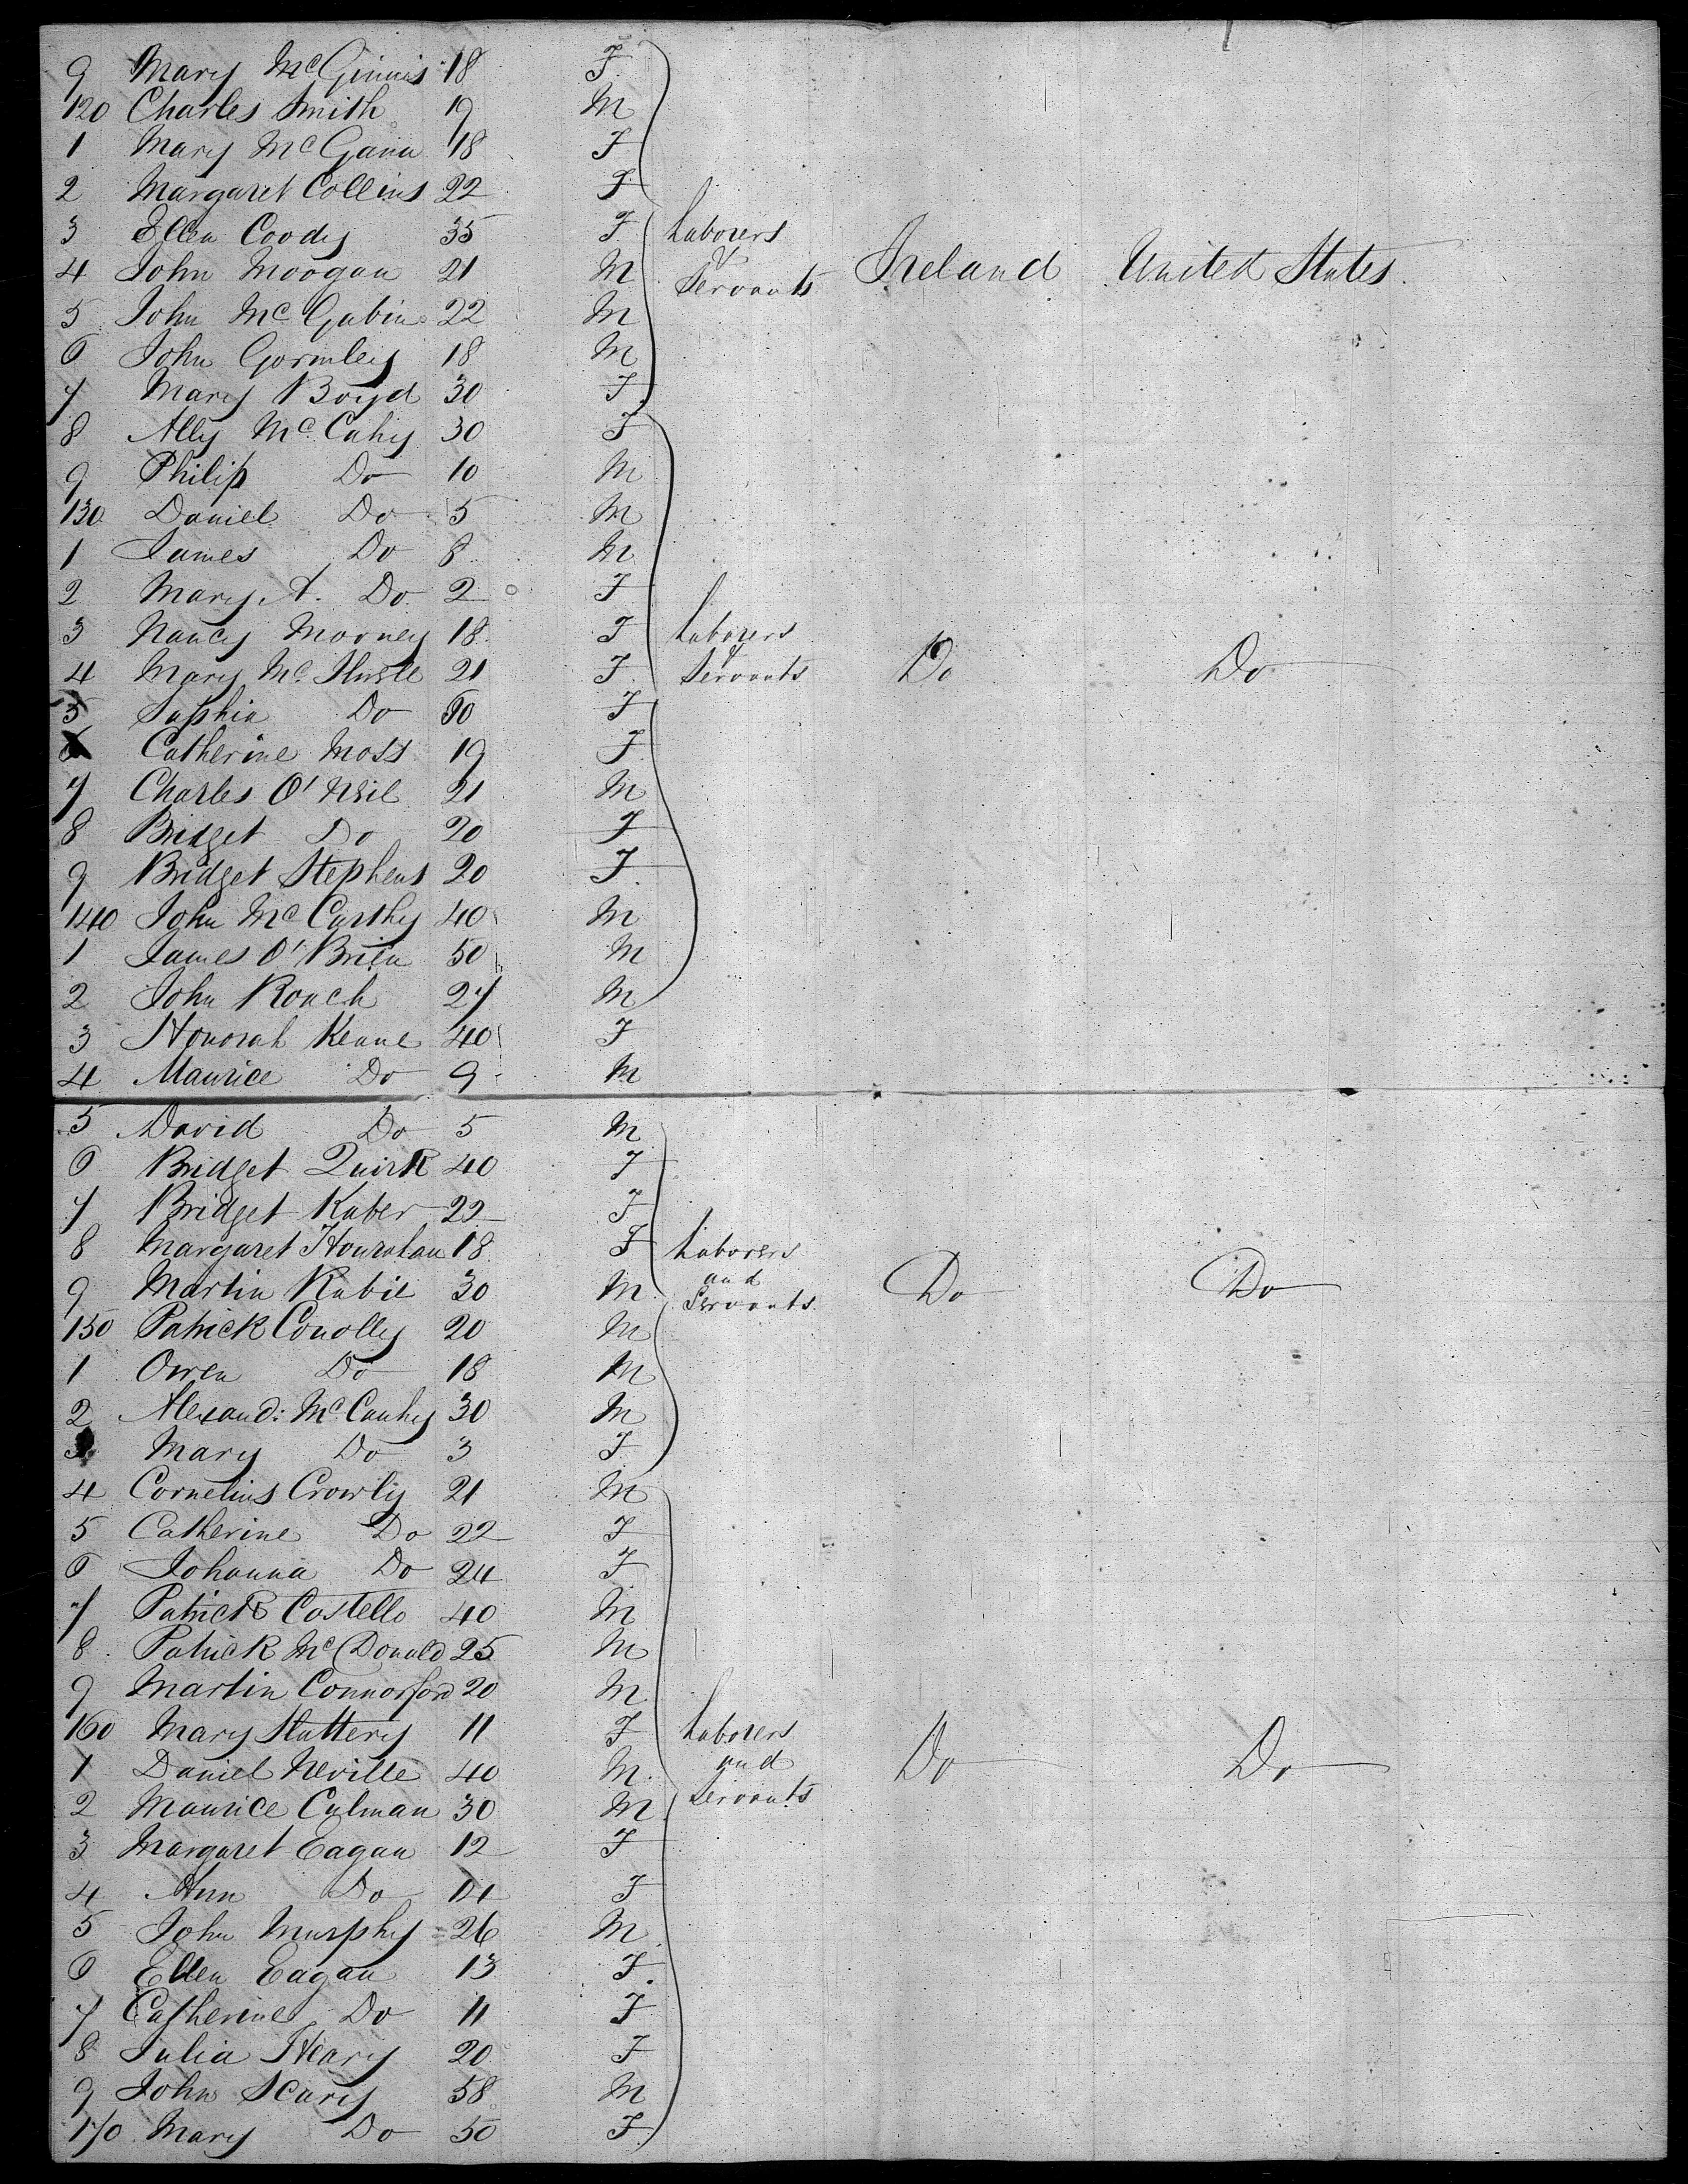 9 Mary McGinnis 18 F
120 Charles Smith 19 M
1 Mary McGann 18 F
2 Margaret Collins 22 F
3 Ellen Coody 35 F Laborers
4 John Moogan 21 M & Servants Ireland United States
5 John McGubin 22 M
6 John Gormley 18 M
7 Mary Boyd 30 F
8 Ally McCahy 30 F
9 Philip Do 10 M
130 Daniel Do 5 M
1 James Do 8 M
2 Mary A. Do 2 F
3 Nancy Mooney 18 F Laborers
4 Mary Mc 21 F & Servants Do Do
5 Do 60 F
6 Catherine Moss 19 F
7 Charles O'Neil 21 M
8 Bridget Do 20 F
9 Bridget Stephens 20 F
140 John McCarthy 40 M
1 James O'Brien 50 M
2 John Roach 27 M
3 Honorah Keane 40 F
4 Maurice Do 9 M
5 David Do 5 M
6 Bridget Quirk 40 F
7 Bridget Kuber 22 F
8 Margaret Hourahan 18 F Laborers
9 Martin Kubie 30 M and Servants Do Do
150 Patrick Conolly 20 M
1 Owen Do 18 M
2 Alexand: McCauhy 30 M
3 Mary Do 3 F
4 Cornelius Crowly 21 M
5 Catherine Do 22 F
6 Johanna Do 24 F
7 Patrick Costello 40 M
8 Patrick McDonald 25 M
9 Martin Connorford 20 M
160 Mary Slattery 11 F Laborers
1 Daniel Neville 40 M and Do Do
2 Maurice Culman 30 M Servants
3 Margaret Eagan 12 F
4 Ann Do F
5 John Murphy 26 M
6 Ellen Eagan 13 F
7 Catherine Do 11 F
8 Julia Heary 20 F
9 John Scary 58 M
170 Mary Do 50 F